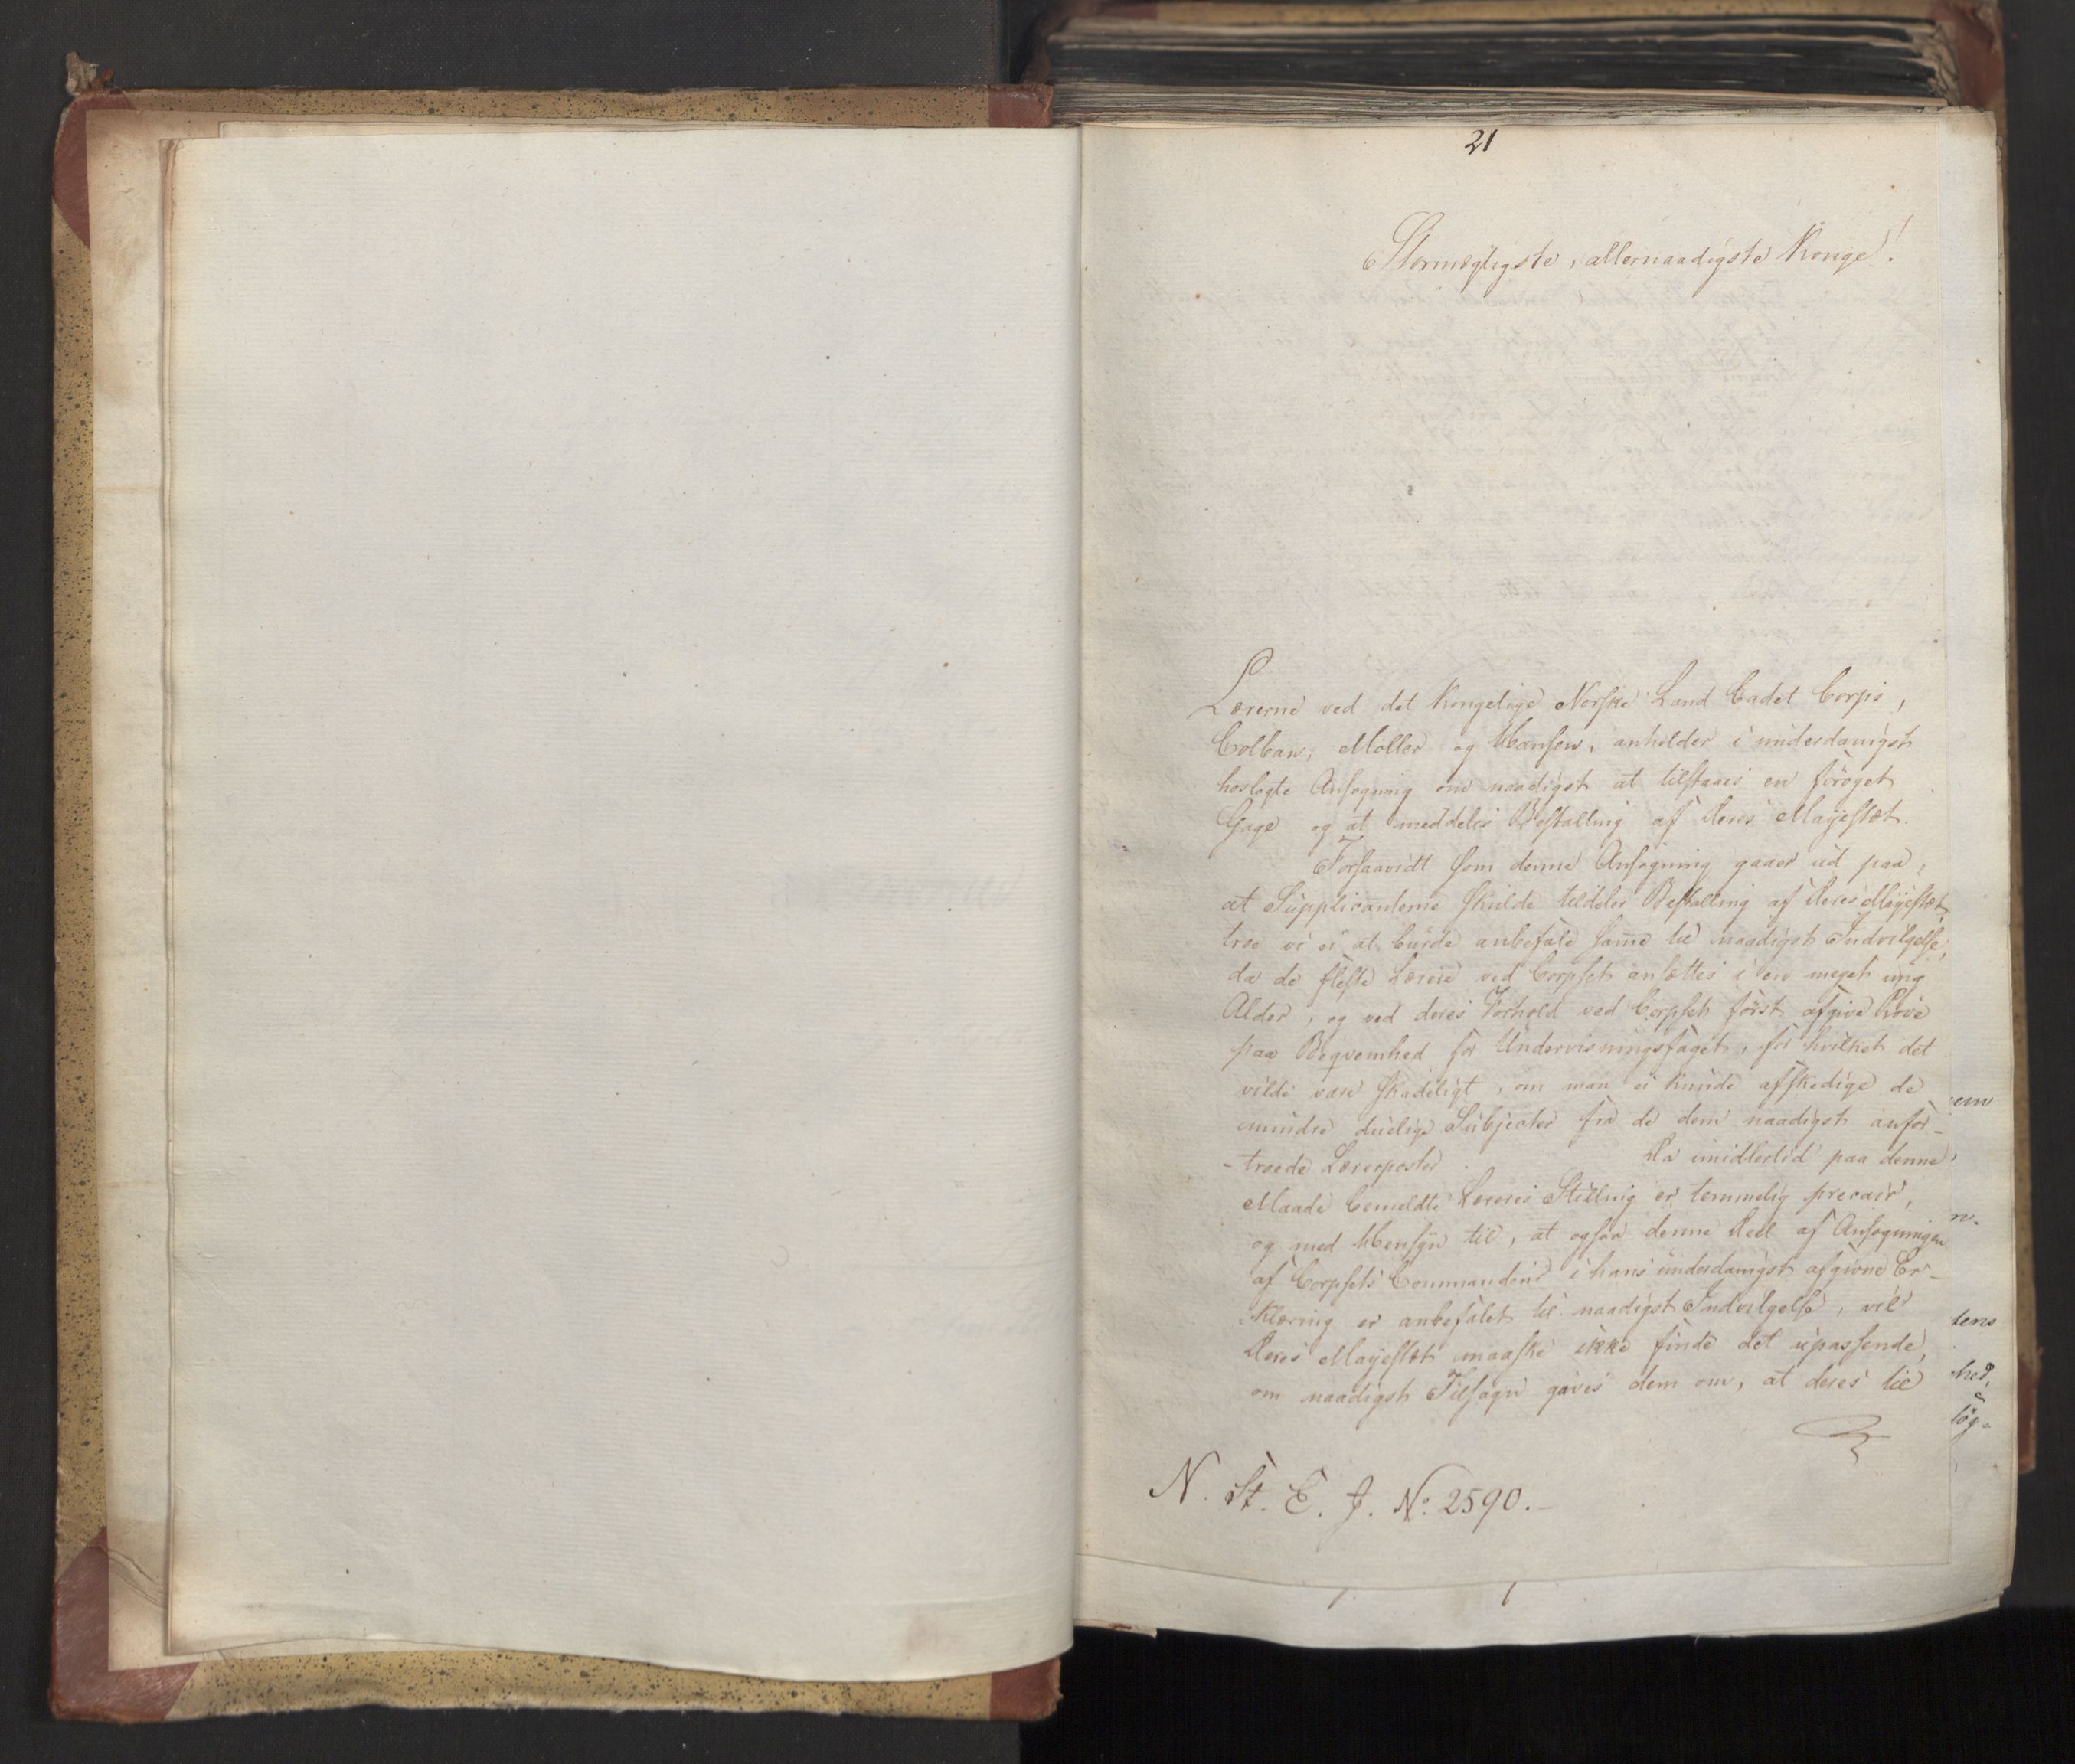 21
Stormægtigste, allernaadigste Konge!
Lærerne ved det Kongelige Norske Land Cadet Corps,
Colban, Møller og Hansen, anholder i underdanigst
hoslagte Ansøgning om naadigst at tilstaaes en forøget
Gage og at meddeles Bestalling af Deres Majestæt.
Forsaavidt som denne Ansøgning gaaer ud paa,
at Supplicanterne skulde tildeles Bestalling af Deres Majestæt,
troe vi ei at burde anbefale samme til naadigst Indvilgelse,
da de fleste Lærere ved Corpset ansættes i en meget ung
Alder, og ved deres Forhold ved Corpset først afgive Prøve
paa Beqvemhed for Undervisningsfaget, for hvilket det
vilde være skadeligt, om man ei kunde afskedige de
mindre duelige Subjecter fra de dem naadigst anfor-
-troede Lærerposter. Da imidlertid paa denne
Maade bemeldte Læreres Stilling er temmelig precair,
og med Hensyn til, at ogsaa denne Deel af Ansøgningen
af Corpsets Commandeur i hans underdanigst afgivne Er-
klæring er anbefalet til naadigst Indvilgelse, vil
Deres Majestæt maaske ikke finde det upassende,
om naadigst Tilsagn gaves dem om, at deres til
N. St. E. J. No. 2590.-
em
n.
tens
hed,
løg-